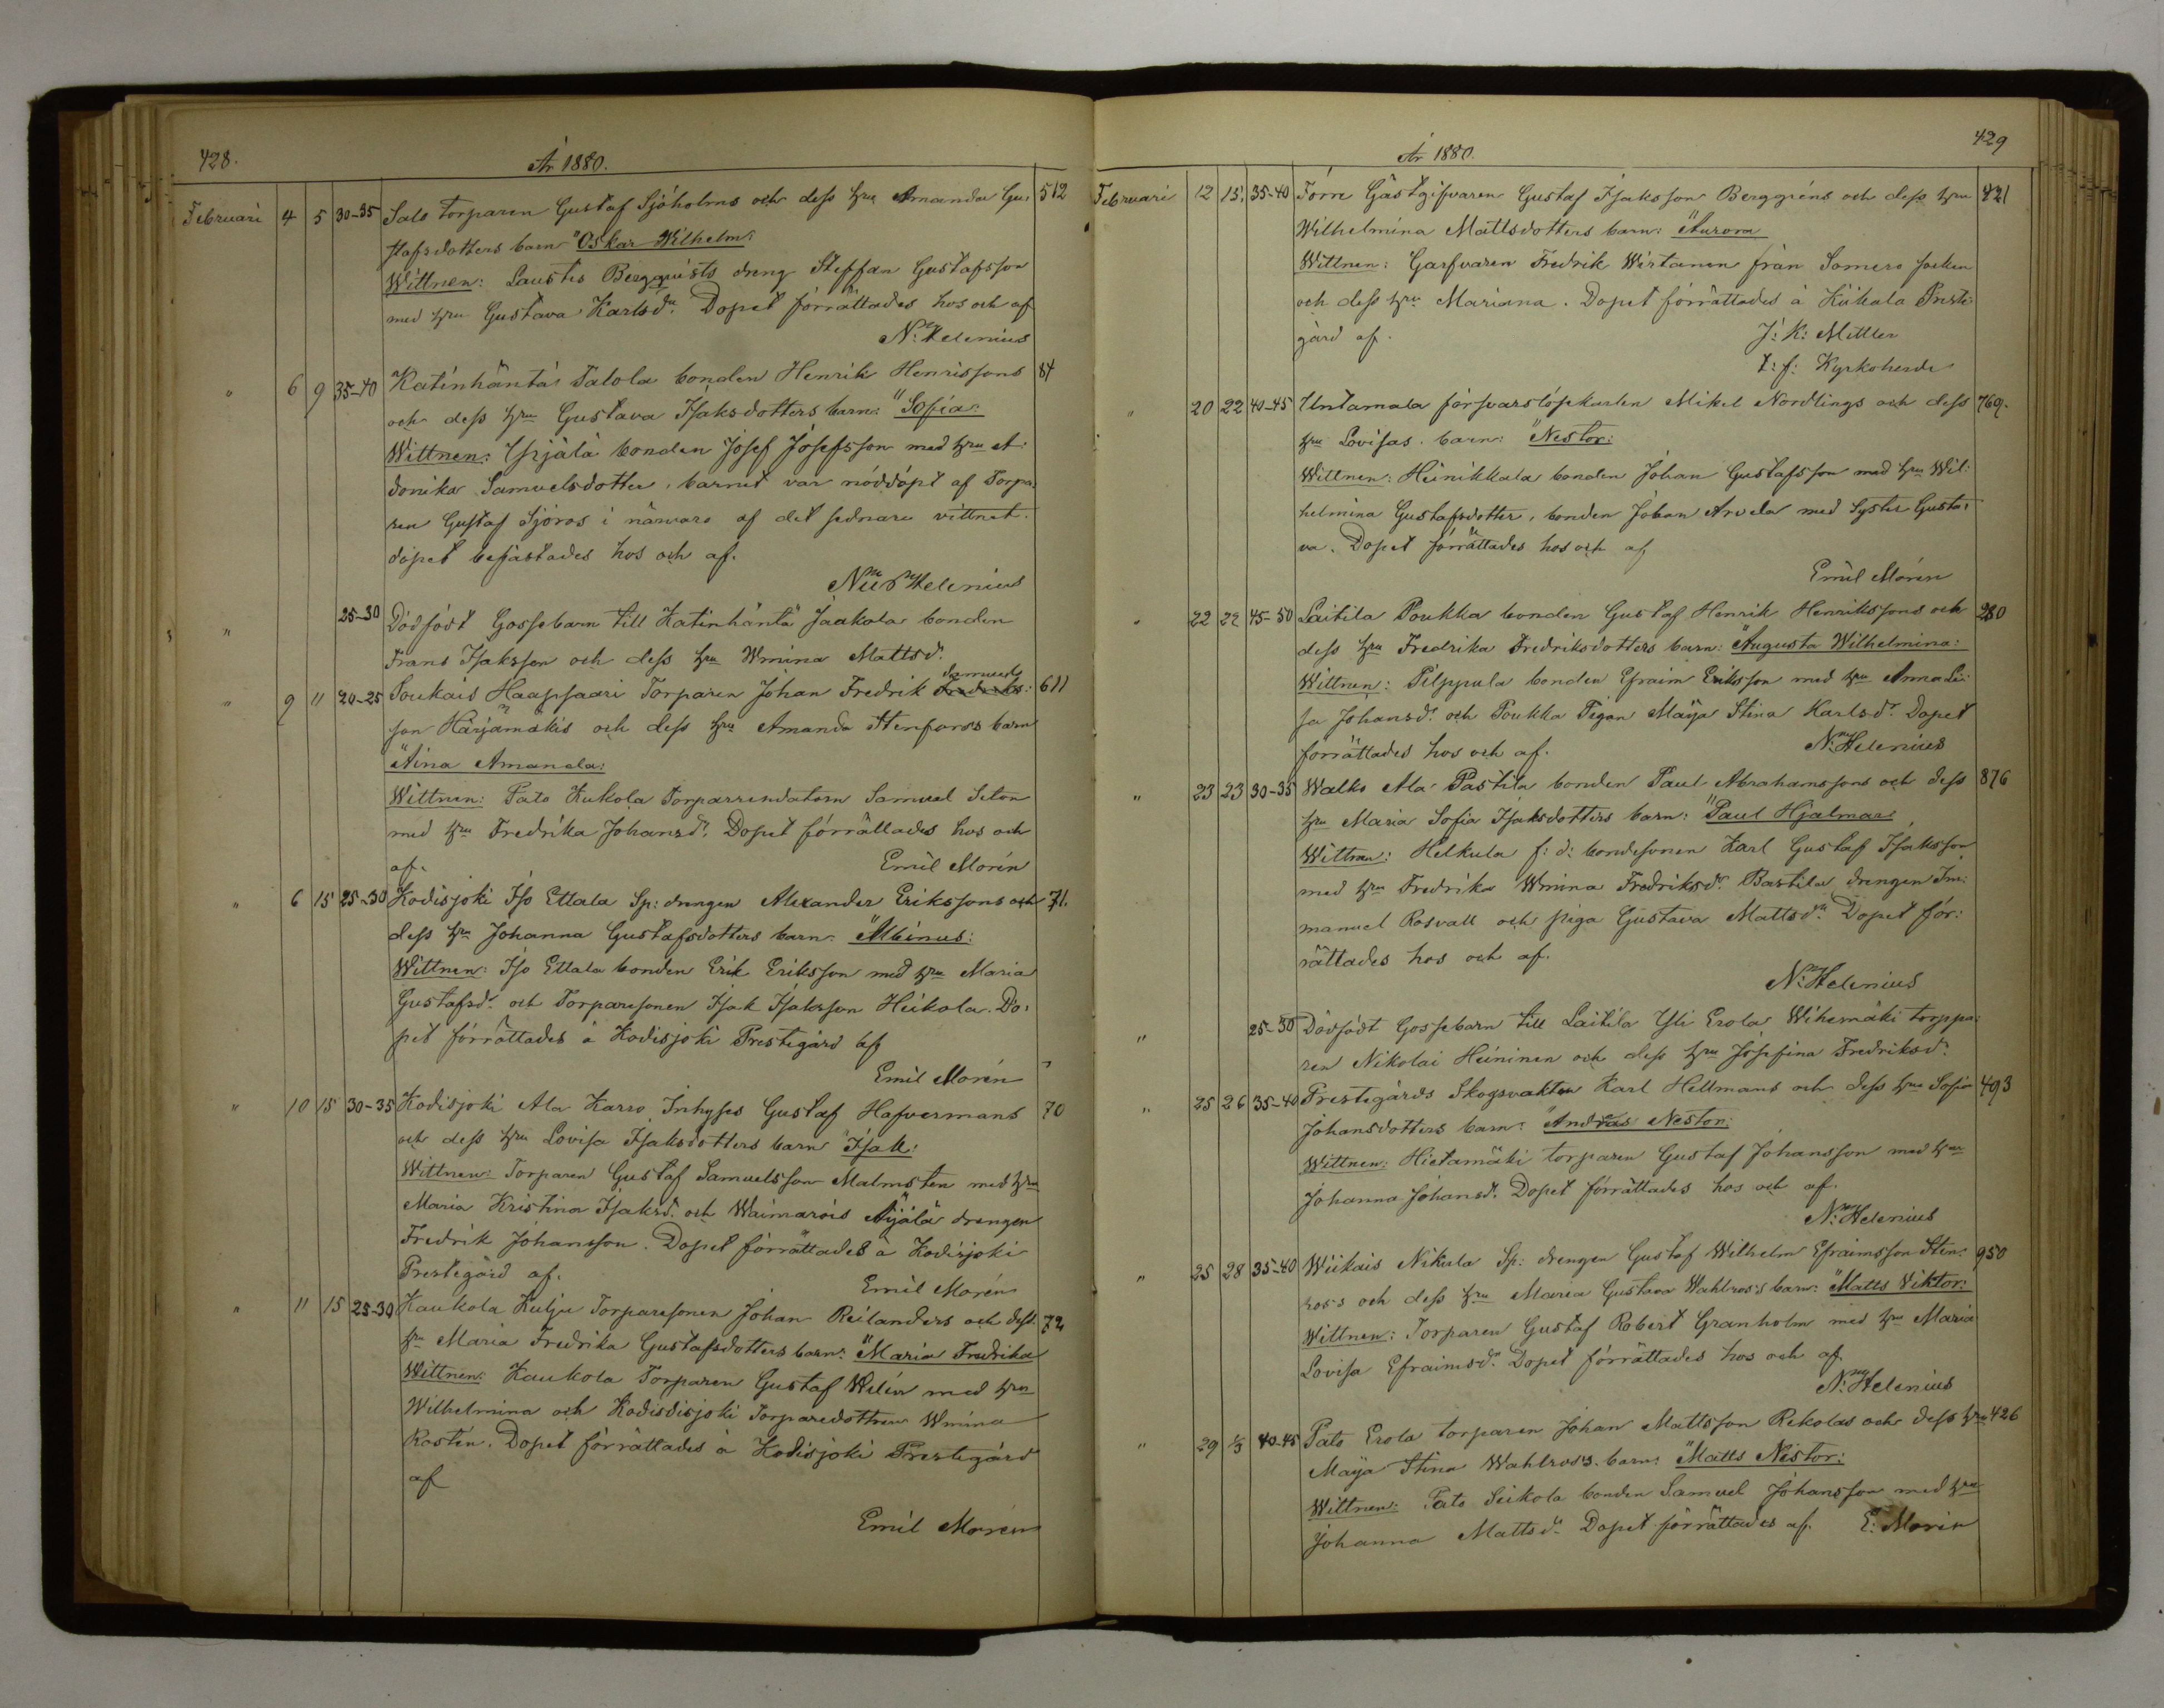 428.
År 1880.
Februari 4 5 30-35 Salo torparen Gustaf Sjöholms och dess hru Amanda Gu: 512
stafsdotters barn "Oskar Wilhelm:
Wittnen: Laustis Bergquists dreng Steffan Gustafsson
med hru Gustava Karlsdr. Dopet förrättades hos och af
N: Helenius
" 6 9 35-40 Katinhäntä Talola bonden Henrik Henrissons 84
och dess hru Gustava Isaksdotters barn: "Sofia:
Wittnen: Yrjälä bonden Josef Josefsson med hru A:
donika Samuelsdotter, barnet var nöddöpt af Torpa:
ren Gustaf Sjöros i närvaro af det sednare vittnet.
döpet befästades hos och af.
Helenius
" 25-30 Dödfödt Gossebarn till Katinhäntä Jaakola bonden
Frans Isaksson och dess hru Wmina Mattsdr.
Samuels
" 9 11 20-25 Soukais Haapsaari Torparen Johan Fredrik Fredriks: 611
son Härjämäkis och dess hru Amanda Stenfors's barn
"Aina Amanda:
Wittnen: Pato Kukola Torparrendatorn Samuel Seton
med hru Fredrika Johansdr. Dopet förrättades hos och
af. Emil Morén
" 6 15 25-30 Kodisjoki Iso Ettala Sp: drengen Alexander Erikssons och 71.
dess hru Johanna Gustafsdotters barn: "Albinus:
Wittnen: Iso Ettala bonden Erik Eriksson med hru Maria
Gustafsdr. och Torparesonen Isak Isaksson Heikola. Do:
pet förrättades å Kodisjoki Prestegård af
Emil Morén
" 10 15 30-35 Kodisjoki Ala Karro Inhyses Gustaf Hafvermans 70
och dess hru Lovisa Isaksdotters barn "Isak:
Wittnen: Torparen Gustaf Samuelsson Malmsten med hru
Maria Kristina Isaksdr. och Waimarois Äijälä drengen
Fredrik Johansson. Dopet förrättades å Kodisjoki
Prestegård af. Emil Morén
" 11 15 25-30 Kaukola Kulju Torparesonen Johan Reilanders och dess 72
hru Maria Fredrika Gustafsdotters barn: "Maria Fredrika
Wittnen: Kaukola Torparen Gustaf Wilén med hru
Wilhelmina och Kodisdisjoki Torparedottren Wmina
Rostén. Dopet förrättades å Kodisjoki Prestegård
af
Emil Morén
429
År 1880.
Februari 12 15 35-40 Förre Gästgifvaren Gustaf Isaksson Berggréns och dess hru 421
Wilhelmina Mattsdotters barn: "Aurora
Wittnen: Garfvaren Fredrik Wirtanen från Somero socken
och dess hru Mariana. Dopet förrättades å Kiikala Preste:
gård af. J: K: Mittler
t: f: Kyrkoherde
" 20 22 40-45 Untamala försvarslösekarlen Mikel Nordlings och dess 769.
hru Lovisas barn: "Nestor:
Wittnen: Heinikkala bonden Johan Gustafsson med hru Wil:
helmina Gustafsdotter, bonden Johan Arvela med Syster Gusta:
va. Dopet förrättades hos och af
Emil Morén
" 22 22 45-50 Laitila Poukka bonden Gustaf Henrik Henrikssons och 280
dess hru Fredrika Fredriksdotters barn: "Augusta Wilhelmina:
Wittnen: Pilppula bonden Efraim Eriksson med hru Anna Lii:
sa Johansdr. och Poukka Pigan Maija Stina Karlsdr. Dopet
förrättades hos och af. N: Helenius
" 23 23 30-35 Walko Ala Pastila bonden Paul Abrahamssons och dess 876
hru Maria Sofia Isaksdotters barn: "Paul Hjalmar
Wittnen: Helkula f: d: bondesonen Karl Gustaf Isaksson
med hru Fredrika Wmina Fredriksdr. Bastila drengen Im:
manuel Rosvall och piga Gustava Mattsdr. Dopet för:
rättades hos och af.
N: Helenius
" 25-30 Dödfödt Gossebarn till Laitila Yli Erola Wihemäki torppa:
ren Nikolai Heininen och dess hru Josefina Fredriksdr.
" 25 26 35-40 Prestegårds Skogsvakten Karl Hellmans och dess hru Sofia 493
Johansdotters barn: "Andras Nestor:
Wittnen: Hietamäki torparen Gustaf Johansson med hru
Johanna Johansdr. Dopet förrättades hos och af.
N: Helenius
" 25 28 35-40 Wiikais Nikula Sp: drengen Gustaf Wilhelm Efraimsson Sten: 950
ros's och dess hru Maria Gustava Wahlros's barn: "Matts Viktor:
Wittnen: Torparen Gustaf Robert Granholm med hru Maria
Lovisa Efraimsdr. Dopet förrättades hos och af.
N: Helenius
" 29 1/3 40-45 Pato Erola torparen Johan Mattsson Rekolas och dess hru 426
Maija Stina Wahlros's barn: "Matts Nestor:
Wittnen: Pato Seikola bonden Samuel Johansson med hru
Johanna Mattsdr. Dopet förrättades af. E: Morén